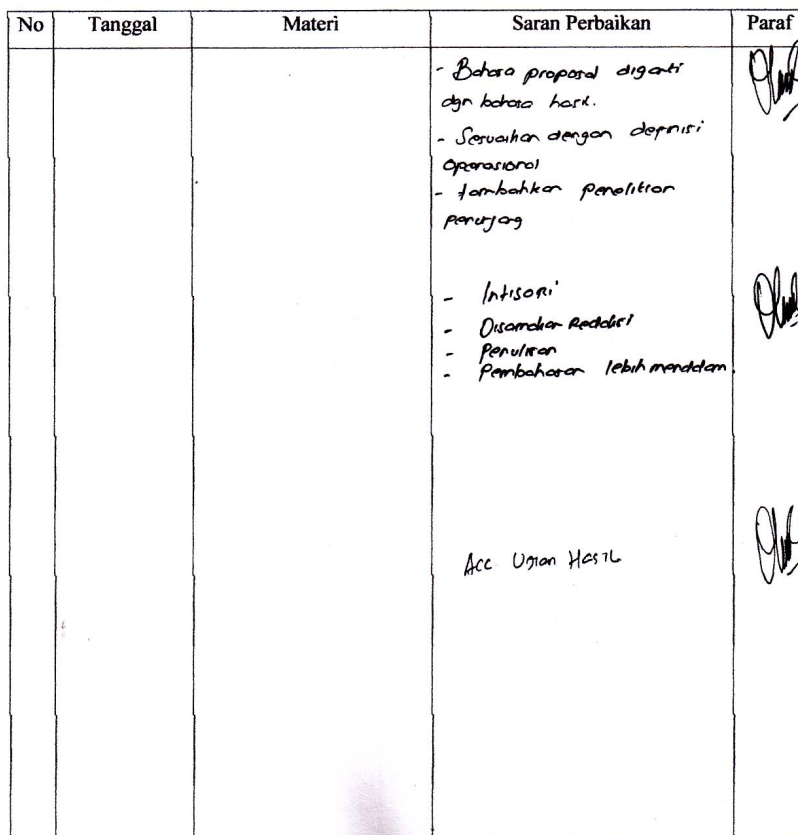 No Tanggal Materi Saran Perbaikan Paraf
- Bahasa proposal diganti
dgn bahasa hasil.
- Sesuaikan dengan definisi
operasional
- tambahkan penelitian
penunjang
- Intisari
- Disamakan Redaksi
- Penulisan
- Pembahasan lebih mendalam.
Acc Ujian Hasil